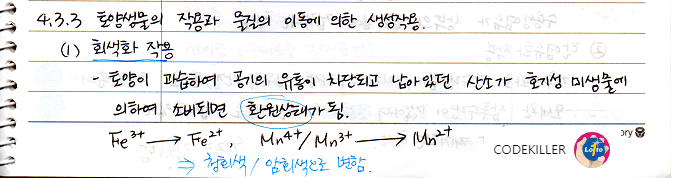 4.3.3 토양생물의 작용과 물질의 이동에 의한 생성작용.
(1) 회색화 작용
- 토양이 과습하여 공기의 유통이 차단되고 남아있던 산소가 호기성 미생물에
의하여 소비되면 환원상태가 됨.
Fe³⁺ → Fe²⁺, Mn⁴⁺/Mn³⁺ → Mn²⁺
⇒ 청회색 / 암회색으로 변함.
ory
CODEKILLER